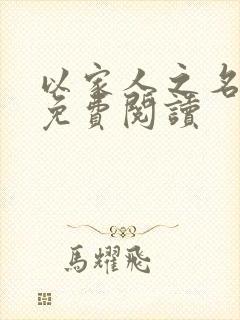 以家人之名
免費閱讀
馬耀飛